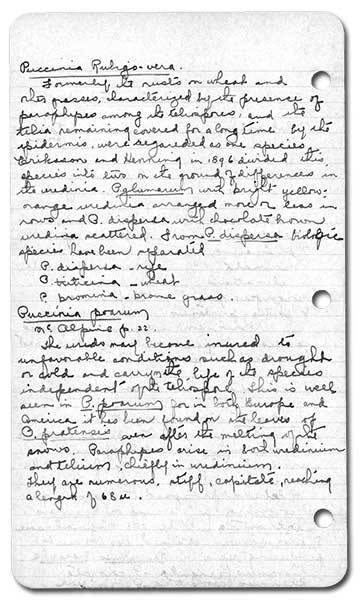 Puccinia Rubigo-vera.
Formerly the rusts on wheat and
other grasses, characterized by the presence of
paraphyses among the teliospores, and the
telia remaining covered for a long time by the
epidermis, were regarded as one species
Eriksson and Henning in 1896 divided this
species into two on the ground of differences in
the uredinia. P. glumarum with bright yellow-
orange uredinia arranged more or less in
rows and P. dispersa with chocolate brown
uredinia scattered. From P. dispersa biologic
species have been separated
P. dispersa - rye
P. triticina - wheat
P. bromina - brome grass.
Puccinia poarum
Mc Alpine p. 22.
The uredo may become inured to
unfavorable conditions such as drought
or cold and carry the life of the species
independent of the teliospore. This is well
seen in P. poarum for in both Europe and
America it has been found on the leaves of
P. pratensis even after the melting of the
snows. Paraphyses arise in both uredinium
and telium, chiefly in uredinium.
They are numerous, stiff, capitate, reaching
a length of 68u.